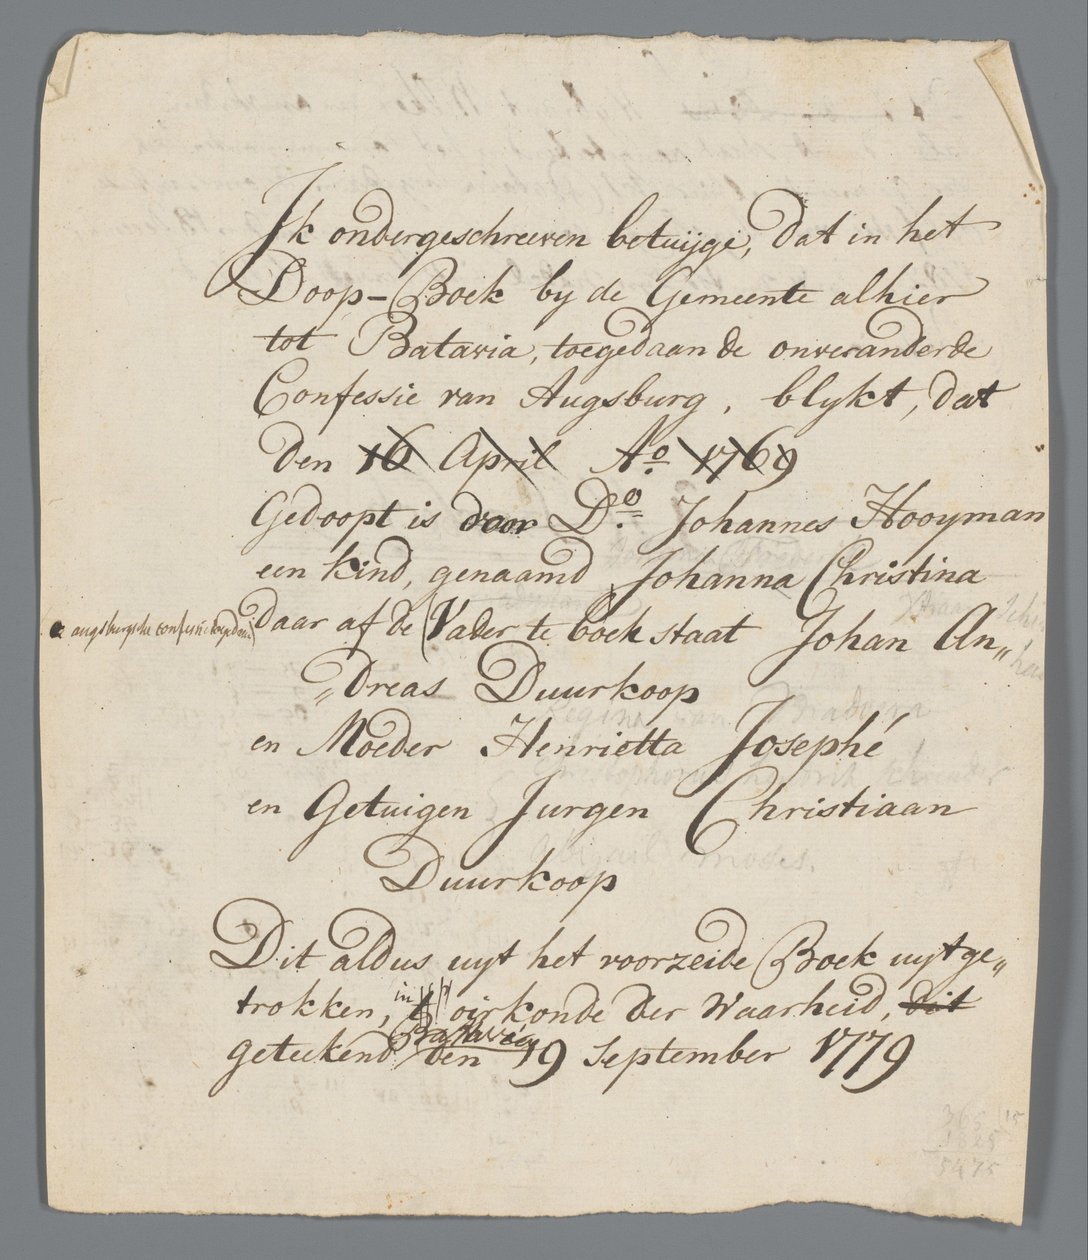 Ik ondergeschreeven betuijge, dat in het
Doop-Boek by de Gemeente alhier
tot Batavia, toegedaan de onveranderde
Confessie van Augsburg, blykt, dat
den 16 April Aº 1769
Gedoopt is door Dº Johannes Hooyman
een kind, genaamd Johanna Christina
daar af de Vader te boek staat Johan An„
„dreas Duurkoop
en Moeder Henrietta Josephé
en Getuigen Jurgen Christiaan
Duurkoop
Dit aldus uyt het voorzeide Boek uytge„
trokken, in oirkonde der Waarheid, dit
geteekend Batavia den 19 September 1779
augsburgsche
Regina van
Abigail Moses.
365 15
1825
5475